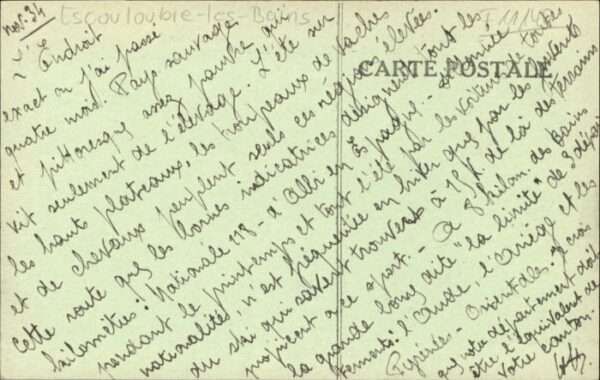 nov. 34
Escouloubre-les-Bains
CARTE POSTALE
L'Endroit
exact où j'ai passé
quatre mois. Pays sauvage
et pittoresque assez pauvre qui
vit seulement de l'élevage. L'été sur
les hauts plateaux, les troupeaux de vaches
et de chevaux peuplent seuls ces régions élevées.
Cette route que les bornes indicatrices désignent tous les
kilomètres: Nationale 118 - d'Albi en Espagne -
pendant le printemps et tout l'été par les voitures de toutes
nationalités, n'est fréquentée en hiver que par les
du ski qui savent trouver à 15 K de là des terrains
propices à ce sport. - A 8 kilom. des Bains
la grande borne dite "la limite" de 3 départements:
l'Aude, l'Ariège et les
Pyrénées-Orientales. Je crois
que votre département doit
être l'équivalent de
votre canton.